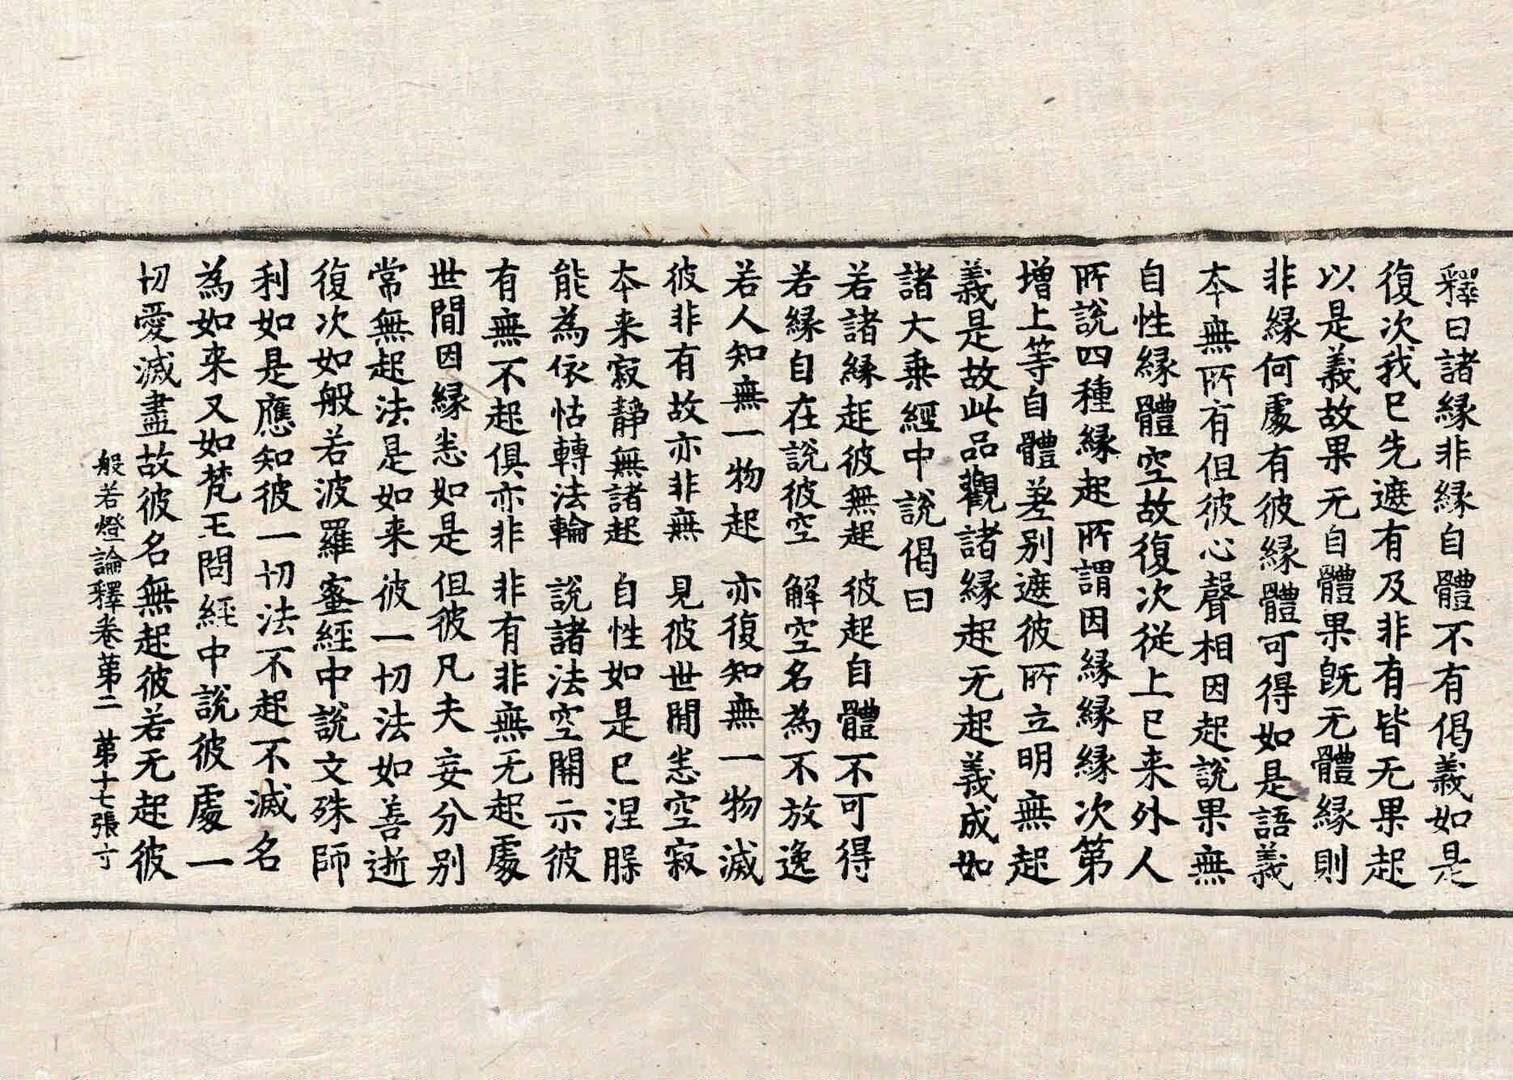 釋曰諸緣非緣自體不有偈義如是
復次我已先遮有及非有皆无果起
以是義故果无自體果旣无體緣則
非緣何處有彼緣體可得如是語義
本無所有但彼心聲相因起說果無
自性緣體空故復次從上已来外人
所說四種緣起所謂因緣緣緣次第
增上等自體差別遮彼所立明無起
義是故此品觀諸緣起无起義成如
諸大乘經中說偈曰
若諸緣起彼無起　彼起自體不可得
若緣自在說彼空　解空名為不放逸
若人知無一物起　亦復知無一物滅
彼非有故亦非無　見彼世間悉空寂
本来寂靜無諸起　自性如是已涅槃
能為依怙轉法輪　說諸法空開示彼
有無不起俱亦非　非有非無无起處
世間因緣悉如是　但彼凡夫妄分別
常無起法是如来　彼一切法如善逝
復次如般若波羅蜜經中說文殊師
利如是應知彼一切法不起不滅名
為如来又如梵王問經中說彼處一
切愛滅盡故彼名無起彼若无起彼
般若燈論釋卷第二　第十七張寸